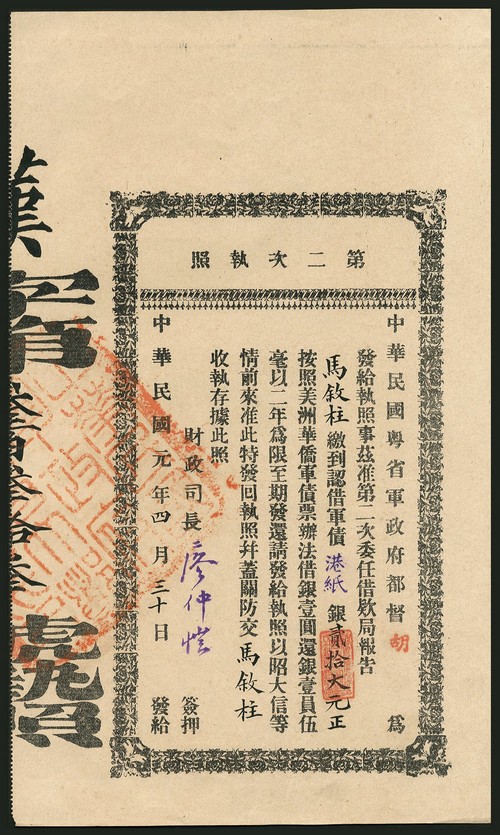 第二次執照
中華民國粵省軍政府都督 胡 為
發給執照事茲准第二次委任借欵局報告
馬敘柱 繳到認借軍債 港紙 銀 貳拾大元正
按照美洲華僑軍債票辦法借銀壹圓還銀壹員伍
毫以二年為限至期發還請發給執照以昭大信等
情前來准此特發回執照幷蓋關防交 馬敘柱
收執存據此照
財政司長 廖仲愷 簽押
中華民國元年四月三十日 發給